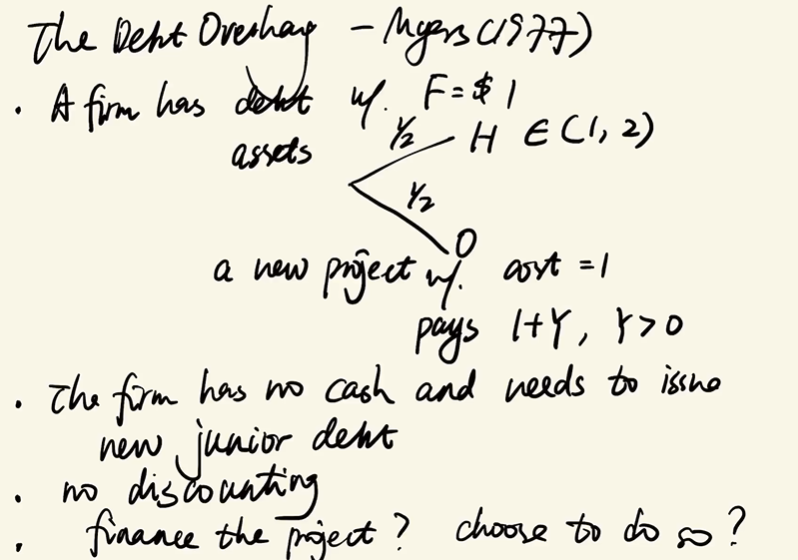 The Debt Overhang – Myers (1977)
· A firm has debt w/. F = $ 1
assets
1/2 H ∈ (1, 2)
1/2 0
a new project w/. cost = 1
pays 1+r, r > 0
· The firm has no cash and needs to issue
new junior debt
· no discounting
· finance the project? choose to do so?